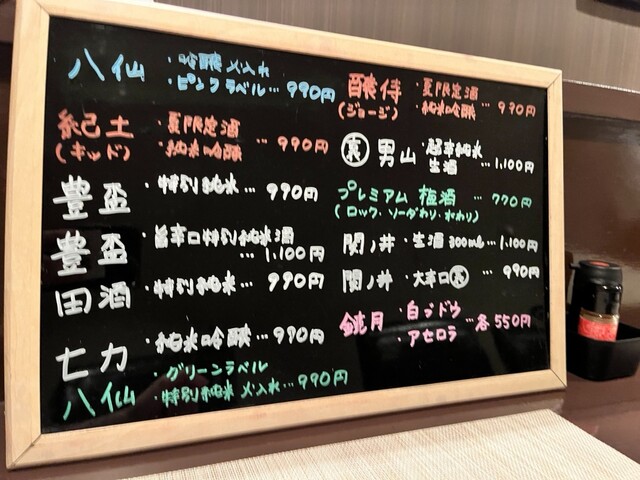 八仙 ・吟醸 〆入れ
・ピンクラベル… 990円
紀土 ・夏限定酒
(キッド) ・純米吟醸 … 990円
豊盃 ・特別純米… 990円
豊盃 ・旨辛口特別純米酒
… 1,100円
田酒 ・特別純米… 990円
七力 ・純米吟醸… 990円
八仙 ・グリーンラベル
・特別純米 〆入れ… 990円
醸侍 ・夏限定酒
(ジョージ) ・純米吟醸 … 970円
裏 男山 ・超辛純米
生酒 … 1,100円
プレミアム 梅酒 … 770円
(ロック・ソーダわり・水わり)
関ノ井 ・生酒 300mℓ… 1,100円
関ノ井 ・大辛口 … 990円
銑月 ・白ブドウ
・アセロラ … 各550円